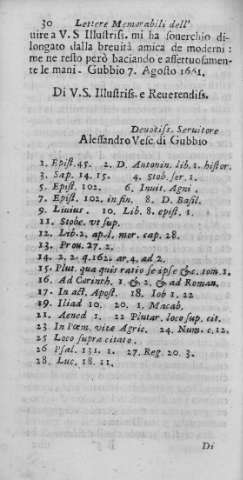 30 Lettere Memorabili dell'
uire a V. S Illustriss. mi ha souerchio di-
longato dalla breuità amica de moderni:
me ne resto però baciando e affettuosamen-
te le mani. Gubbio 7. Agosto
Di V. S. Illustriss. e Reuerendiss.
Deuotiss. Seruitore
Alessandro Vesc. di Gubbio
1. Epist. 45. 2. D. Antonin. lib. 1. histor.
3. Sap. 14. 15. 4. stob. ser. 1.
5. Epist. 102. 6. Inuit. Agni.
7. Epist. 102. in fin. 8. D. Basil.
9. Liuius. 10. Lib. 8. epist. 1.
11. Stobe. vt sup.
12. Lib. 2. mor. cap. 28.
13. Prou. 27. 2.
14. 2. 2. q. 162. ar. 4. ad 2.
15. Plut. qua quis ratio se ipse &c. tom. 1.
16. Ad Corinth. 1 & 2. & ad Roman.
17. In act. Apost. 18. Iob 1. 22
19. Iliad 10. 20. 1. Macab.
21. Aened 1. 22 Plutar. loco sup. cit.
23 In Pœm. vite Agric. 24. Num. c. 12.
25 Loco supra citato.
26 Psal. 131. 1. 27. Reg. 20. 3.
28. Luc. 18. 11.
Di